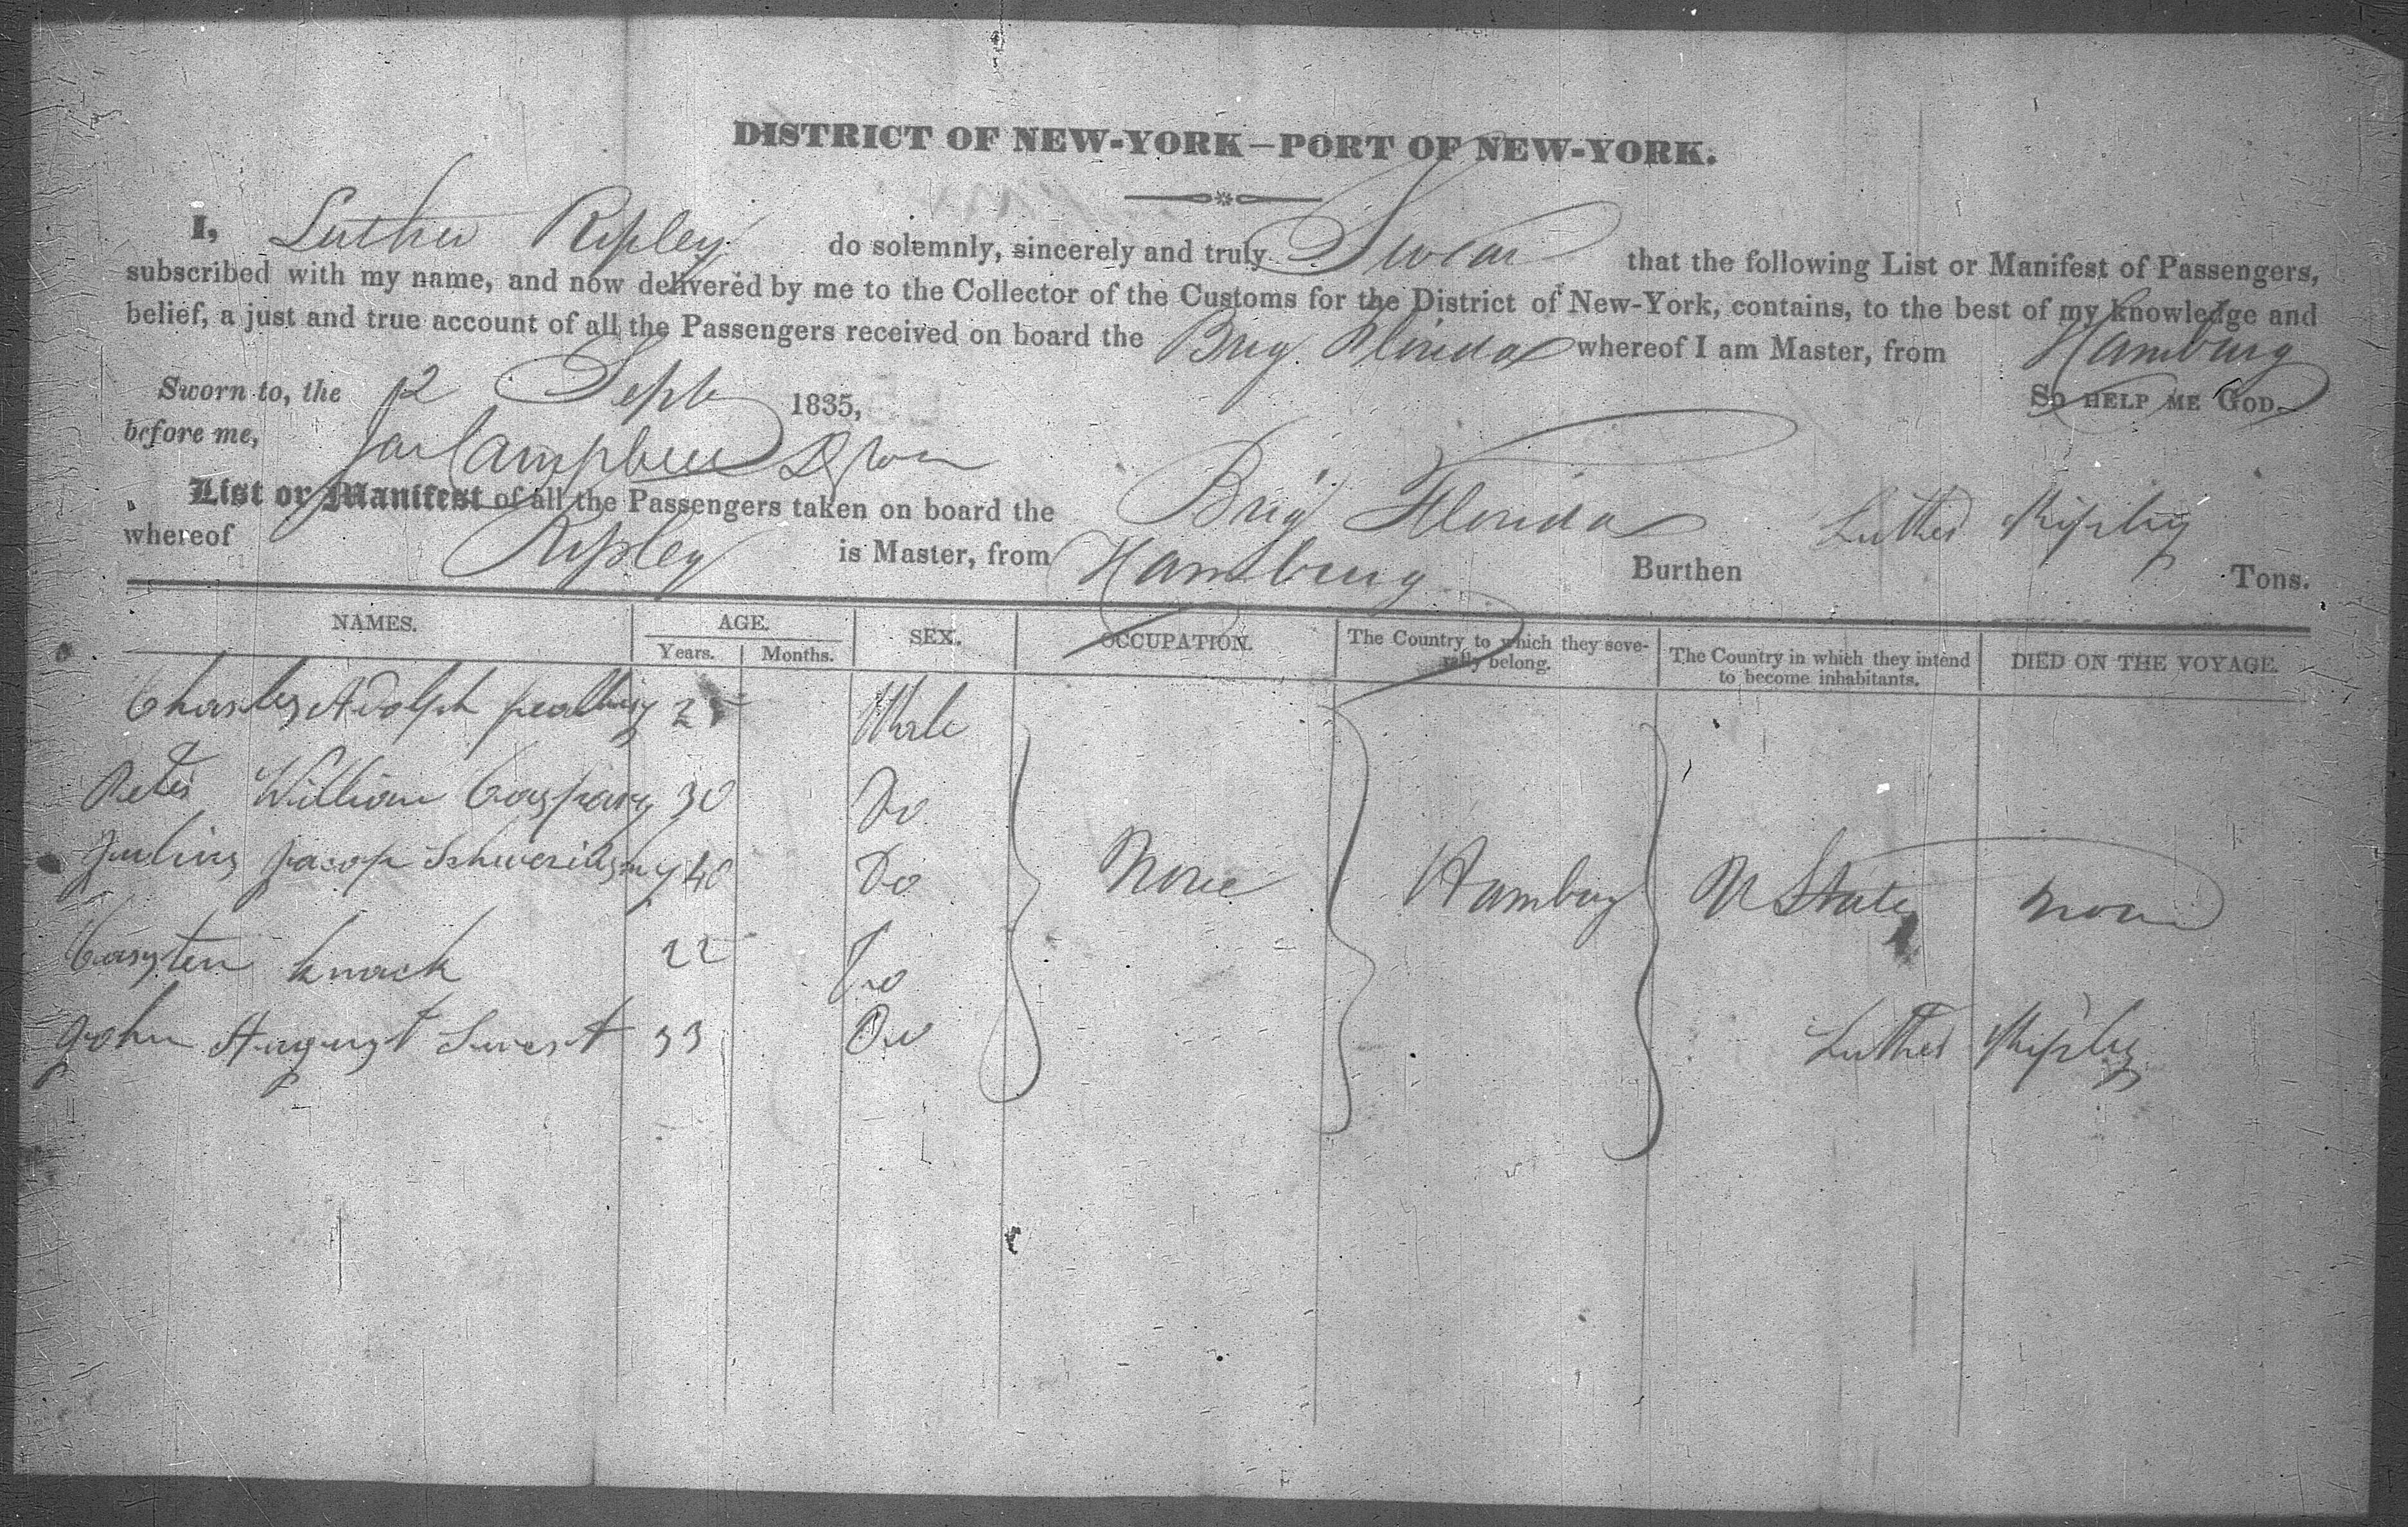 DISTRICT OF NEW-YORK—PORT OF NEW-YORK.
I, Luther Ripley do solemnly, sincerely and truly Swear that the following List or Manifest of Passengers,
subscribed with my name, and now delivered by me to the Collector of the Customs for the District of New-York, contains, to the best of my knowledge and
belief, a just and true account of all the Passengers received on board the Brig Florida whereof I am Master, from Hamburg
Sworn to, the 12 Sept 1835, SO HELP ME GOD.
before me, Jas Campbell
List or Manifest of all the Passengers taken on board the Brig Florida Luther Ripley
whereof Ripley is Master, from Hamburg Burthen Tons.
NAMES. AGE. SEX. OCCUPATION. The Country to which they seve-
rally belong. The Country in which they intend
to become inhabitants. DIED ON THE VOYAGE.
Years. Months.
Charles Adolph 25 Male
Peter William Caspary 30 Do
Julius Jacop 40 Do None Hamburg U States None
Carsten Knack 22 Do
John August 33 Do Luther Ripley